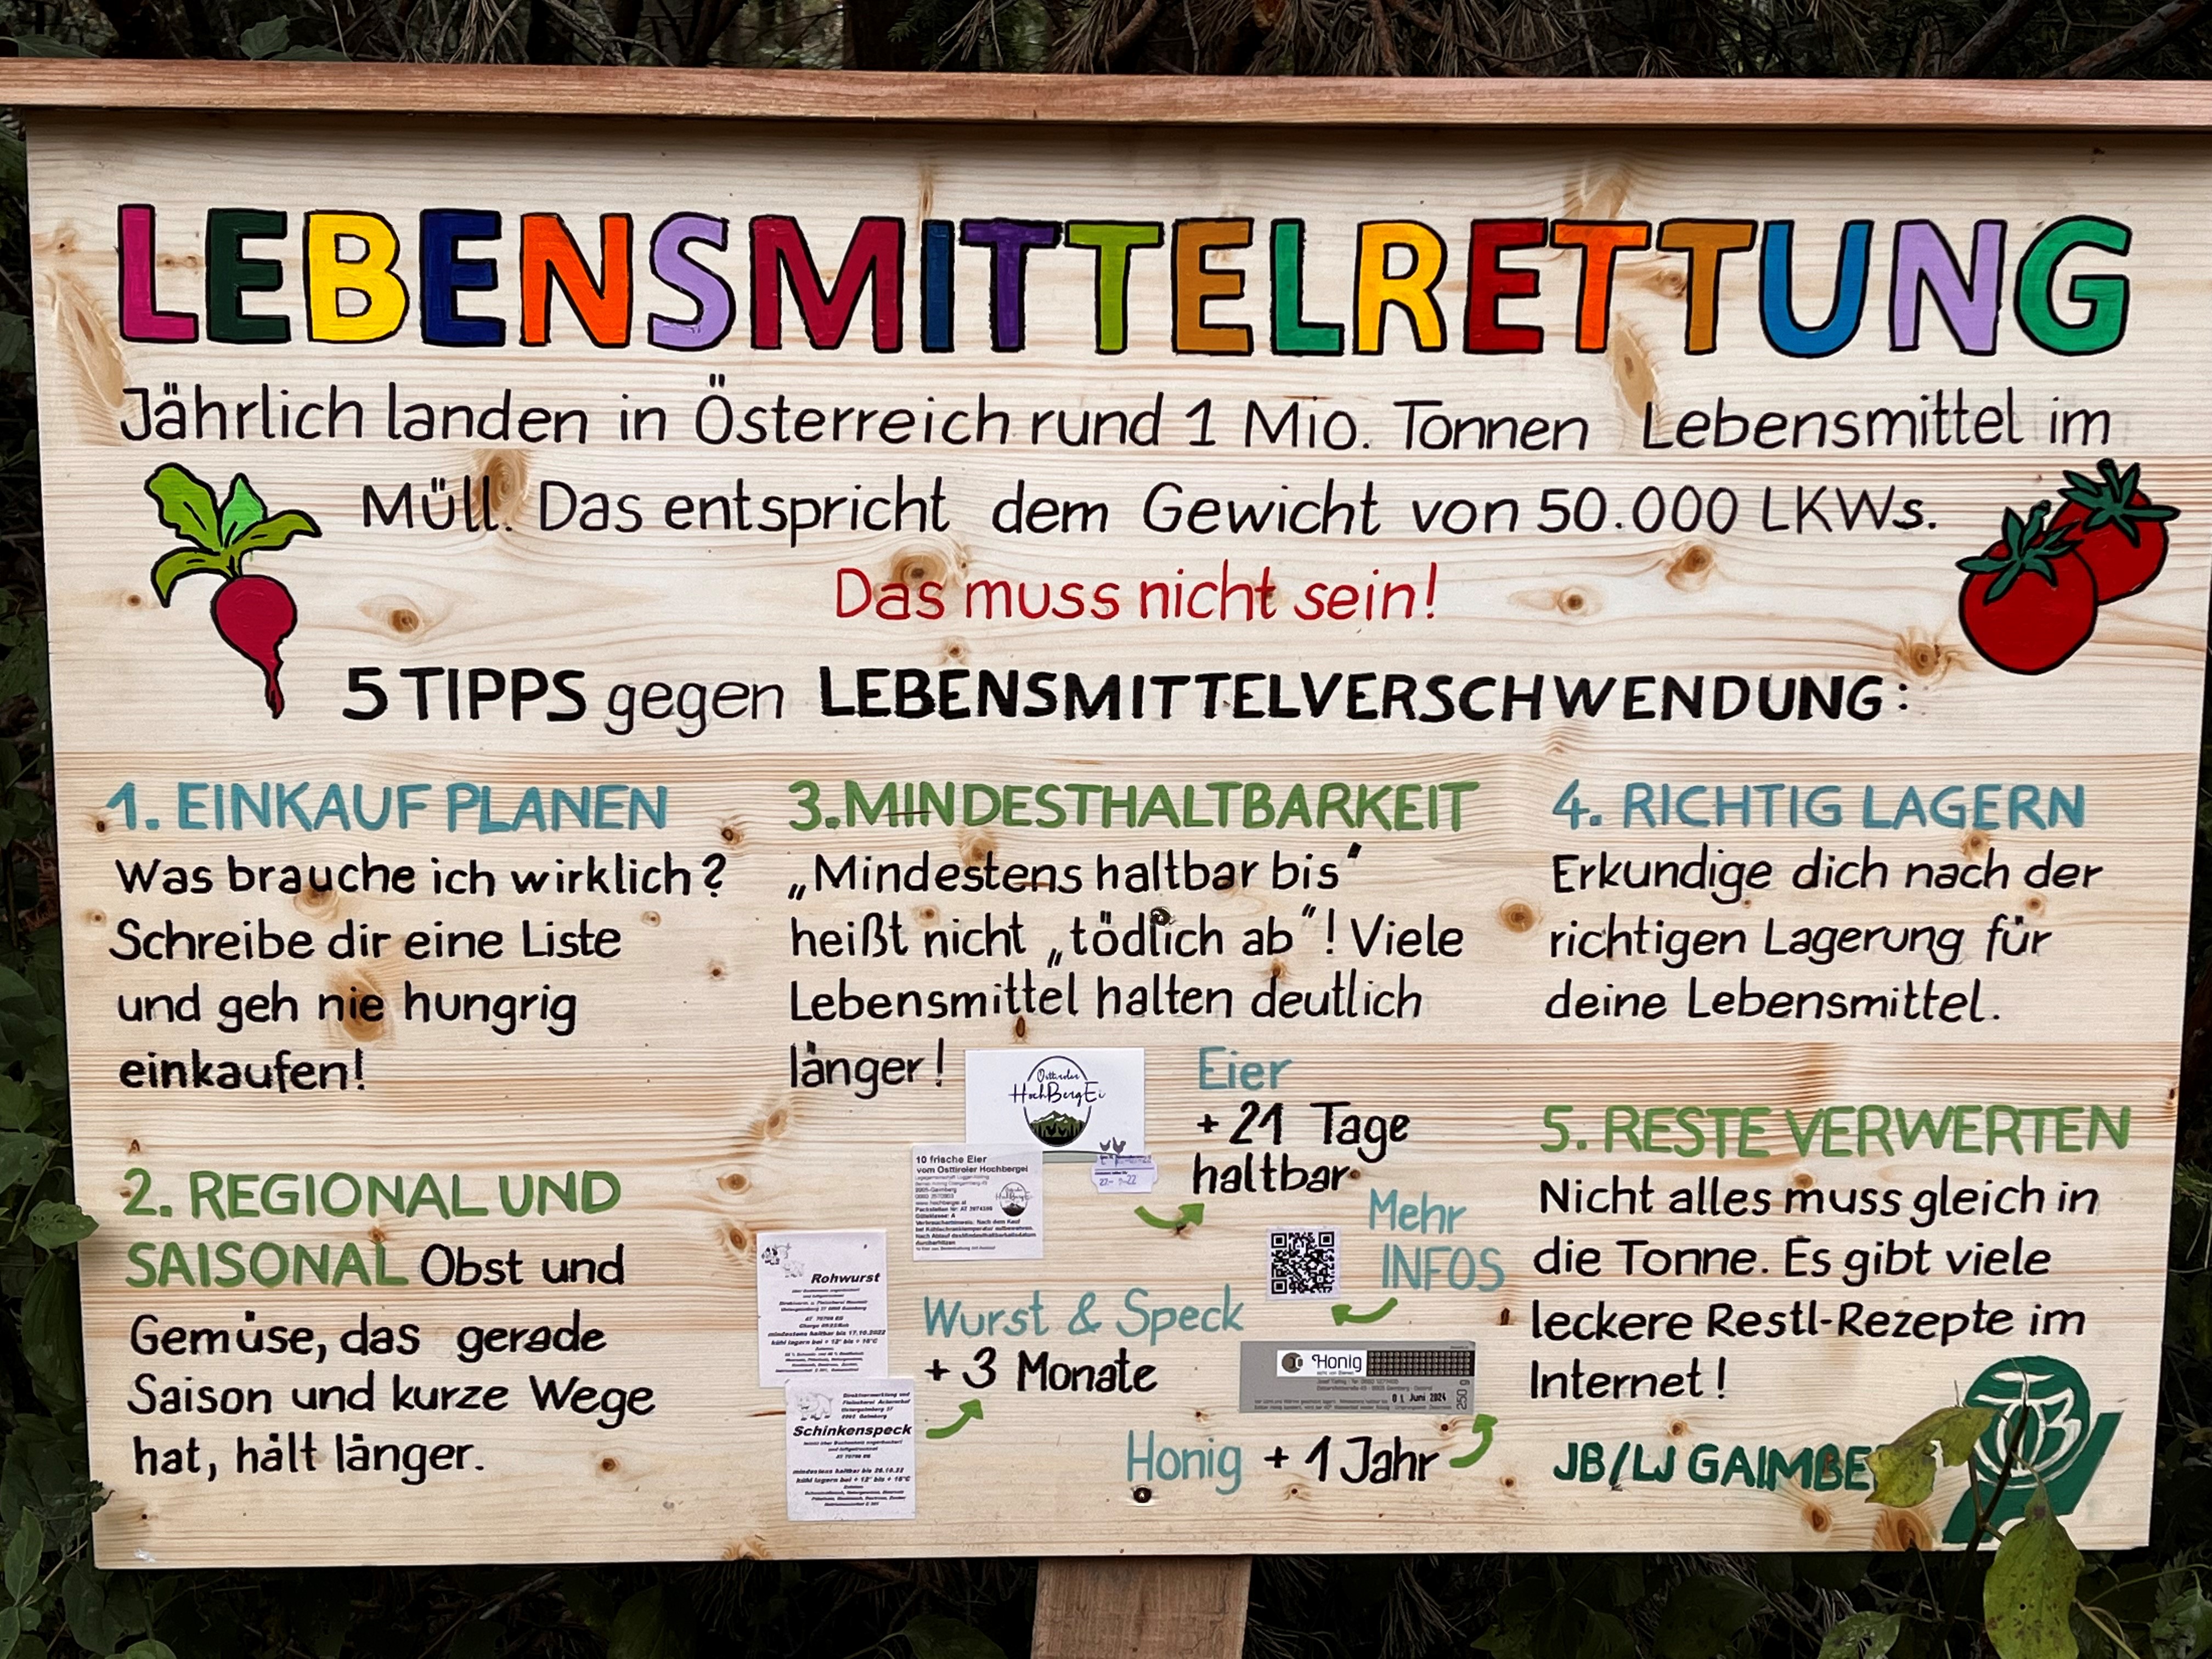 LEBENSMITTELRETTUNG
Jährlich landen in Österreich rund 1 Mio. Tonnen Lebensmittel im
Müll. Das entspricht dem Gewicht von 50.000 LKWs.
Das muss nicht sein!
5 TIPPS gegen LEBENSMITTELVERSCHWENDUNG:
1. EINKAUF PLANEN
Was brauche ich wirklich?
Schreibe dir eine Liste
und geh nie hungrig
einkaufen!
2. REGIONAL UND
SAISONAL Obst und
Gemüse, das gerade
Saison und kurze Wege
hat, hält länger.
3. MINDESTHALTBARKEIT
„Mindestens haltbar bis"
heißt nicht „tödlich ab"! Viele
Lebensmittel halten deutlich
länger!
Osttiroler
HochBergEi
10 frische Eier
vom Osttiroler Hochbergei
Eier
+ 21 Tage
haltbar
Mehr
INFOS
Rohwurst
mindestens haltbar bis 17.10.2022
Schinkenspeck
mindestens haltbar bis 28.10.22
Wurst & Speck
+ 3 Monate
Honig
01 Juni 2024
250 g
Honig + 1 Jahr
4. RICHTIG LAGERN
Erkundige dich nach der
richtigen Lagerung für
deine Lebensmittel.
5. RESTE VERWERTEN
Nicht alles muss gleich in
die Tonne. Es gibt viele
leckere Restl-Rezepte im
Internet!
JB/LJ GAIMBE